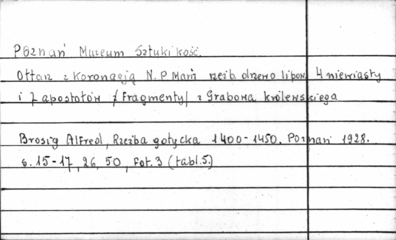 Poznań Muzeum Sztuki kość.
Ołtarz z Koronacją N.P. Marii rzeźb. drzewo lipow. 4 niewiasty
i 7 apostołów / Fragmenty / z Grabowa królewskiego
Brosig Alfred, Rzeźba gotycka 1400-1450. Poznań 1928.
s. 15-17, 26, 50, Fot. 3 (tabl. 5)